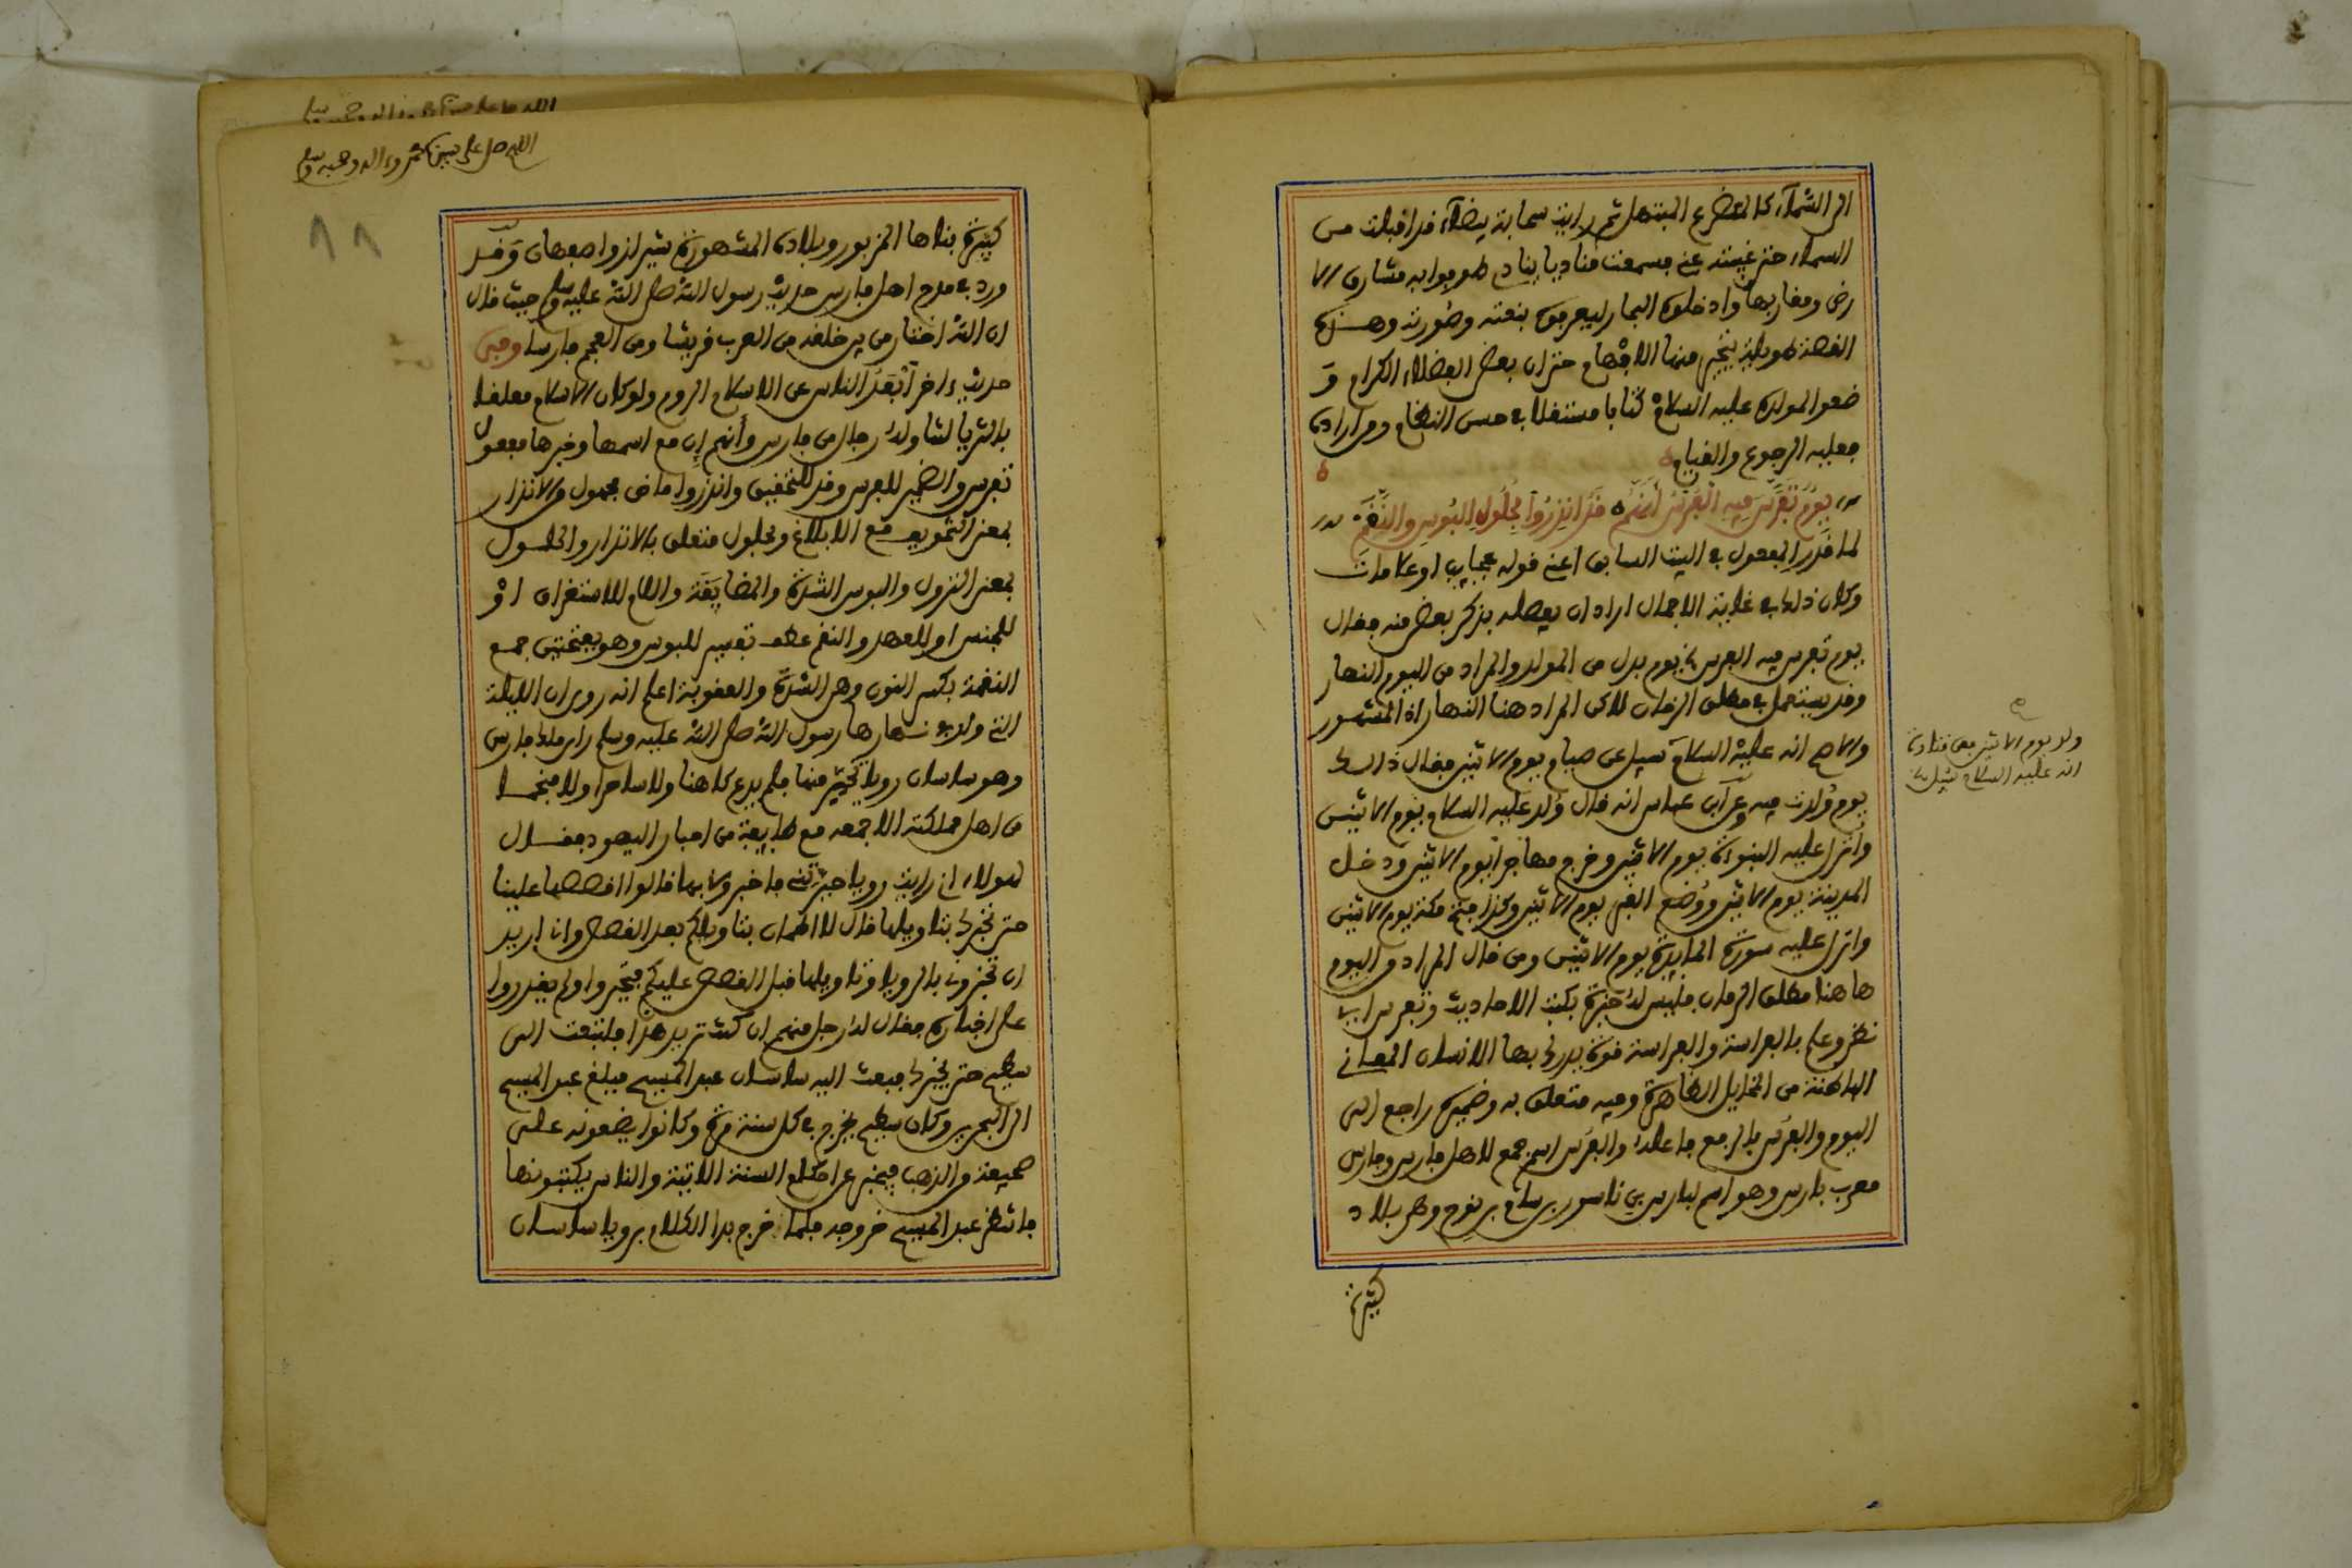 الى السماء كالمتضرع المبتهل ثم رايت سحابة بيضاء قد اقبلت من
السماء حتى غيبته عني فسمعت مناديا ينادي طوفوا به مشارق الا
رض ومغاربها وادخلوه البحار ليعرفوه بنعته وصورته وهذه
القصة طويلة يتحير منها الافهام حتى ان بعض الفضلاء الكرام و
ضعوا لمولده عليه السلام كتابا مستقلا في حسن النظام ومن اراده
فعليه الرجوع والقيام
يوم تفرس فيه الفرس انهم قد انذروا بحلول البوس والنقم
لما قدر المفعول في البيت السابق اعني قوله عجايب او علامات
وكان ذلك في غاية الاجمال اراد ان يفصله بذكر بعض منه فقال
يوم تفرس فيه الفرس الخ يوم بدل من المولد والمراد من اليوم النهار
وقد يستعمل في مطلق الزمان لاكن المراد هنا النهار اذ المشهور
والاصح انه عليه السلام سيل عن صيام يوم الاثنين فقال ذلك
يوم ولدت فيه وعن ابن عباس انه قال ولد عليه السلام يوم الاثنين
وانزل عليه النبوة يوم الاثنين وخرج مهاجرا يوم الاثنين ودخل
المدينة يوم الاثنين ووضع الحجر يوم الاثنين وكذا فتح مكة يوم الاثنين
وانزل عليه سورة المايدة يوم الاثنين ومن قال المراد من اليوم
ها هنا مطلق الزمان فليس له خبرة بكتب الاحاديث وتفرس اي
نظر وعلم بالفراسة والفراسة قوة يدرك بها الانسان المعاني
الباطنة من المخايل الظاهرة وفيه متعلق به وضميره راجع الى
اليوم والفرس بالرفع فاعله والفرس اسم جمع لاهل فارس وفارس
معرب بارس وهو اسم لبارس بن ناسور بن سام بن نوح وهي بلاد
كثيرة
ولد يوم الاثنين فعن قتادة
انه عليه السلام سيل
اللهم صل على سيدنا محمد وءاله وصحبه وسلم
٨٨
كثيرة بناها المزبور وبلاده المشهورة شيراز واصفهان وقد
ورد في مدح اهل فارس حديث رسول الله صلى الله عليه وسلم حيث قال
ان الله اختار من بين خلقه من العرب قريشا ومن العجم فارسا وفي
حديث ءاخر أبعد الناس عن الاسلام الروم ولو كان الاسلام معلقا
بالثريا لتناوله رجال من فارس وأنهم إن مع اسمها وخبرها مفعول
تفرس والضمير للفرس وقد للتحقيق وانذروا ماض مجهول من الانذار
بمعنى التخويف مع الابلاغ وبحلول متعلق بالانذار والحلول
بمعنى النزول والبوس الشدة والمضايقة واللام للاستغراق او
للجنس او للعهد والنقم عطف تفسير للبوس وهو بفتحتين جمع
النقمة بكسر النون وهي الشدة والعقوبة اعلم انه روي ان الليلة
التي ولد في نهارها رسول الله صلى الله عليه وسلم راى ملك فارس
وهو ساسان رويا تحير منها فلم يدع كاهنا ولا ساحرا ولا منجما
من اهل مملكته الا جمعه مع طايفة من احبار اليهود فقال
لهولاء اني رايت رويا حيرتني فاخبروني بها قالوا اقصصها علينا
حتى نخبرك بتاويلها قال لا اطمان بتاويلكم بعد القصص وانا اريد
ان تخبروني بالرويا وتاويلها قبل القصص عليكم فتحيروا ولم يقدروا
على اخباره فقال له رجل منهم ان كنت تريد هذا فلتبعث الى
سطيح حتى يخبرك فبعث اليه ساسان عبد المسيح فبلغ عبد المسيح
الى البحرين وكان سطيح يخرج في كل سنة مرة وكانوا يضعونه على
صحيفة من الذهب فيخبر عن احكام السنة الاتية والناس يكتبونها
فانتظر عبد المسيح خروجه فلما خرج بدا الكلام برويا ساسان